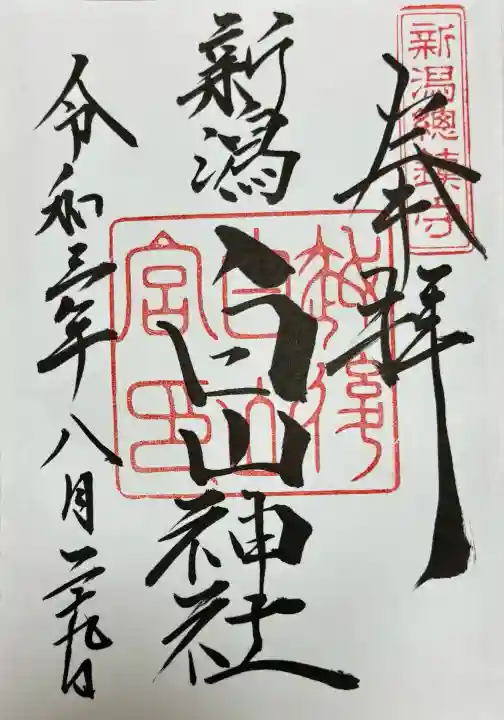 新潟總鎮守
奉拝
新潟
白山神社
越後
白山
宮印
令和三年八月二十九日